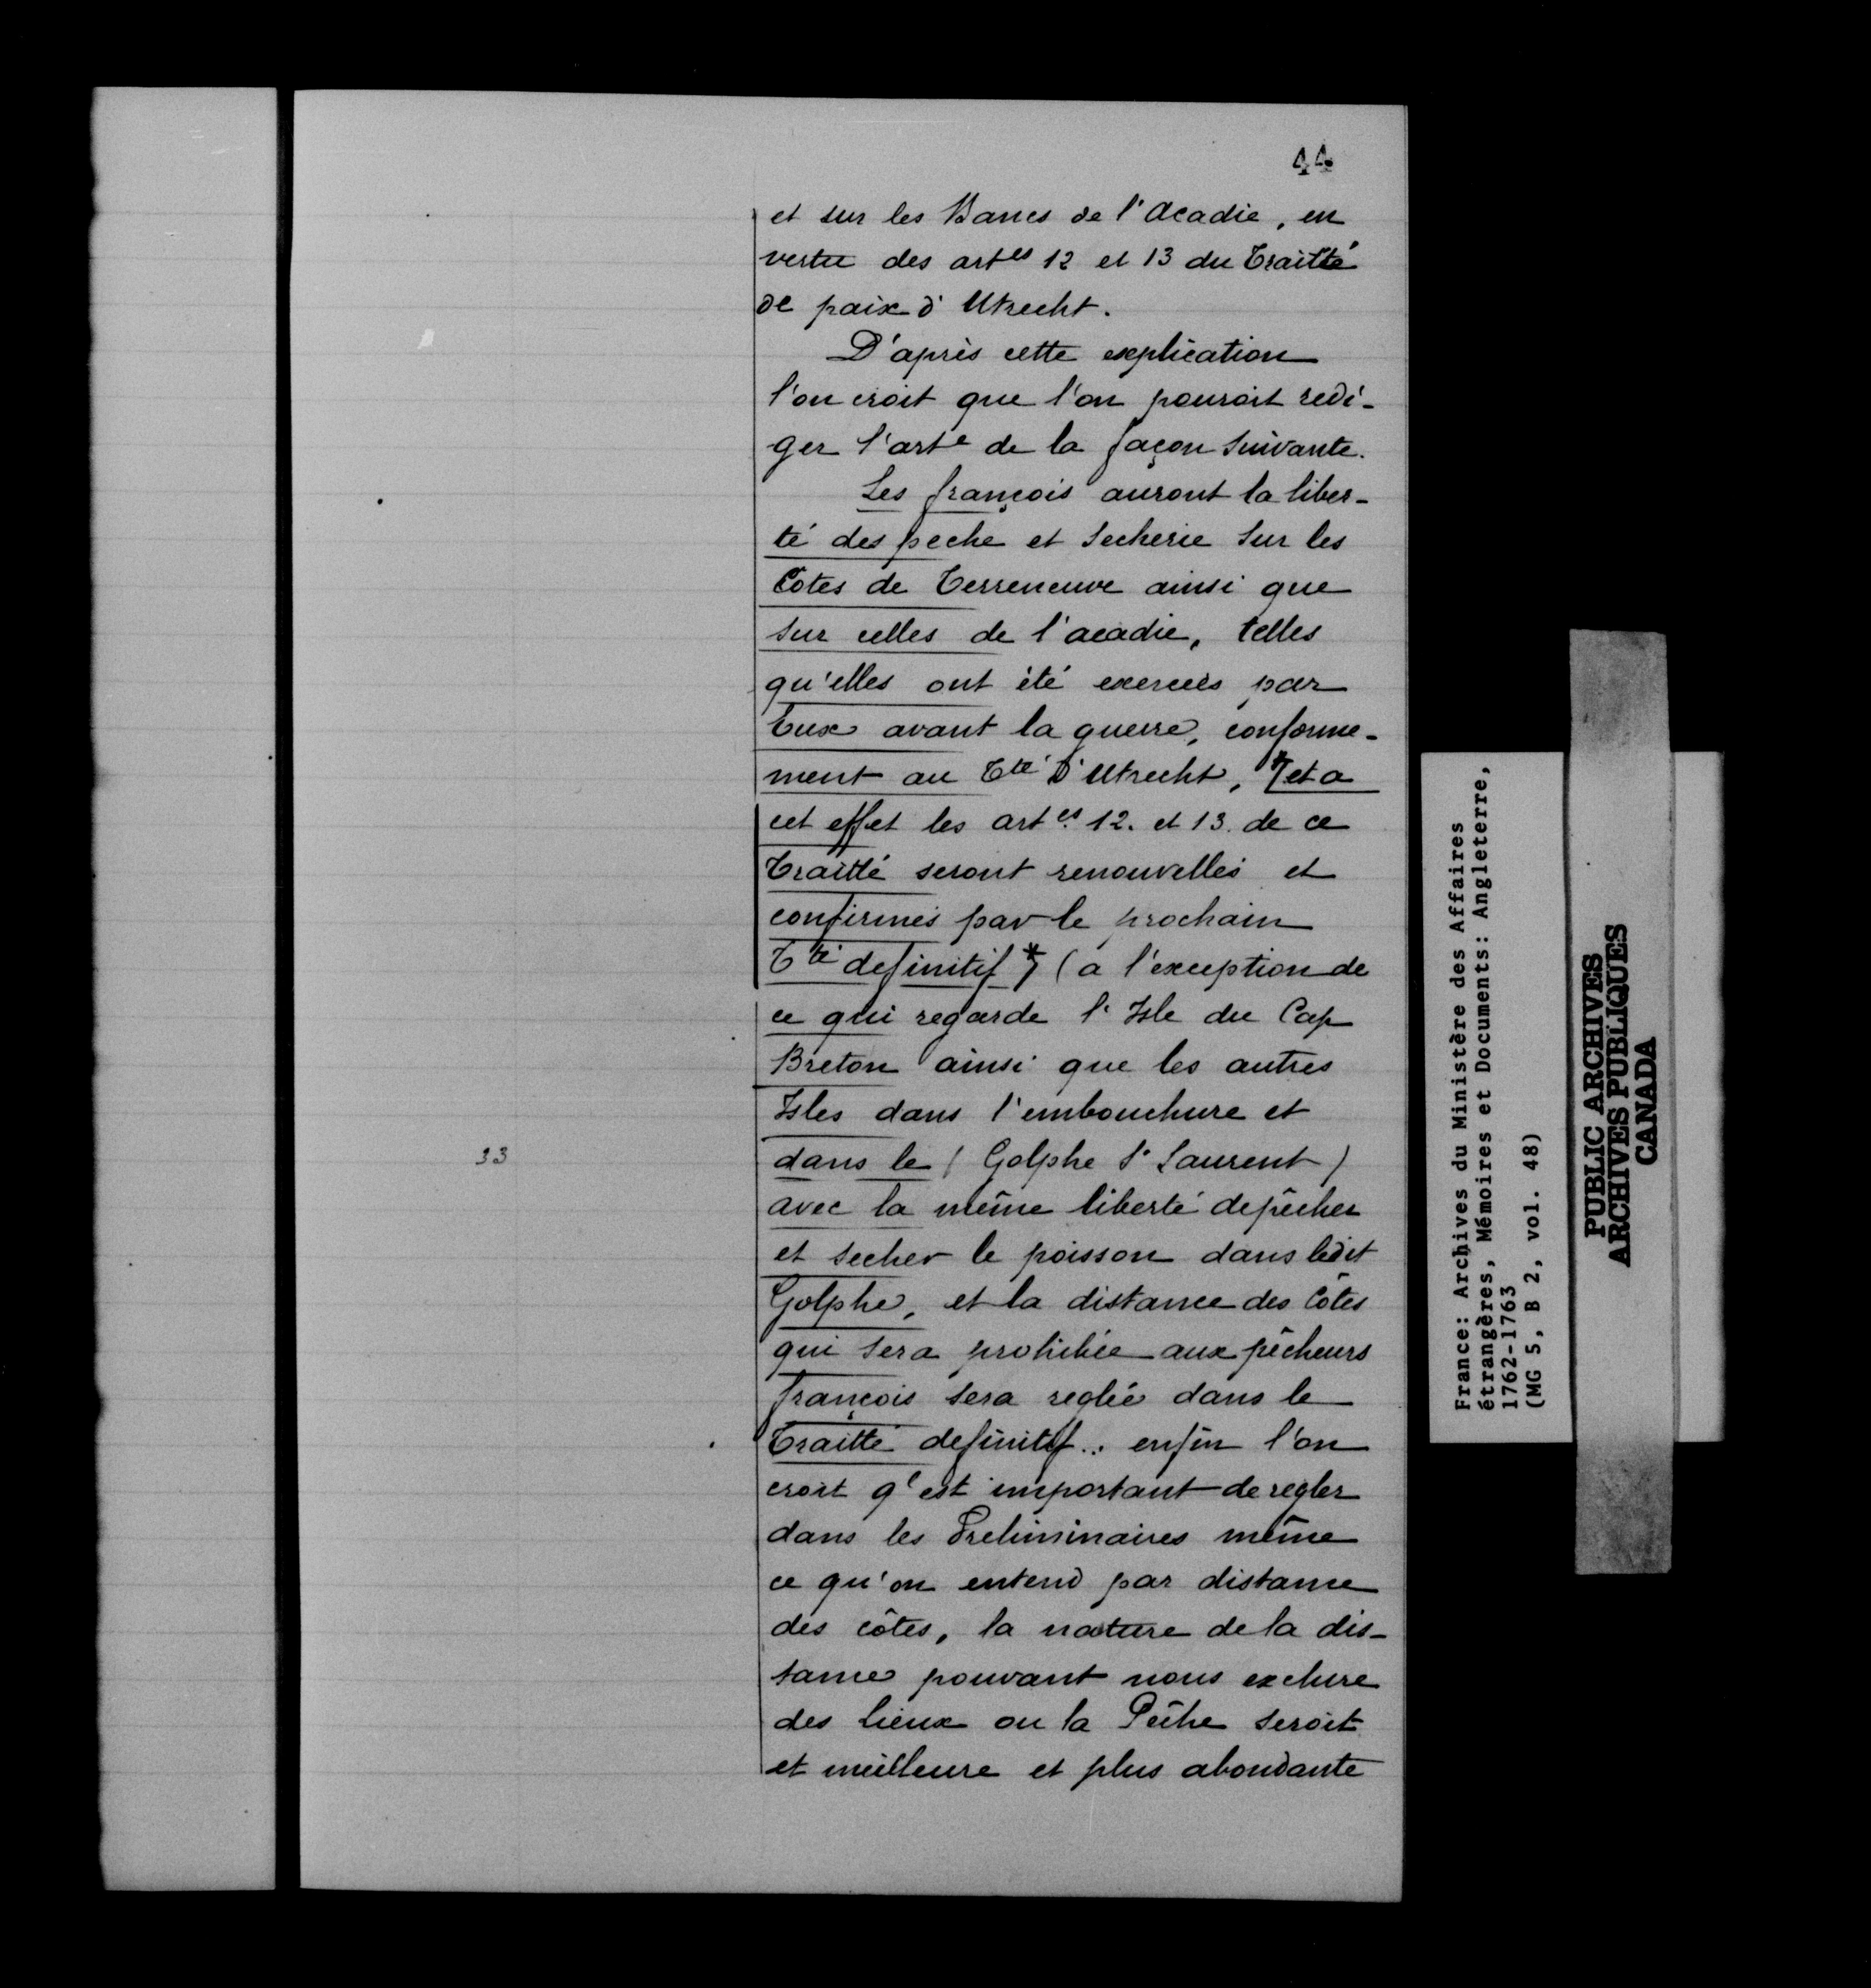 44
et sur les Bancs de l'Acadie, en
vertu des artes 12 et 13 du Traitté
de paix d'Utrecht.
D'après cette explication
l'on croit que l'on pouroit redi-
ger l'arte de la façon suivante.
Les françois auront la liber-
té des peche et secherie sur les
Cotes de Terreneuve ainsi que
sur celles de l'acadie, telles
qu'elles ont été exercées par
Eux avant la guerre, conforme-
ment au Tté D'Utrecht, * et a
cet effet les artes 12. et 13. de ce
Traitté seront renouvellés et
confirmés par le prochain
Tté definitif * (a l'exception de
ce qui regarde l'Isle du Cap
Breton ainsi que les autres
Isles dans l'embouchure et
33
dans le (Golphe St Laurent)
avec la même liberté de pêcher
et secher le poisson dans ledit
Golphe, et la distance des Côtes
qui sera prohibée aux pêcheurs
françois sera reglée dans le
Traitté definitif.. enfin l'on
croit q'l est important de regler
dans les Preliminaires même
ce qu'on entend par distance
des côtes, la nature de la dis-
tance pouvant nous exclure
des lieux ou la Pêche seroit
et meilleure et plus abondante
France: Archives du Ministère des Affaires
étrangères, Mémoires et Documents: Angleterre,
1762-1763
(MG 5, B 2, vol. 48)
PUBLIC ARCHIVES
ARCHIVES PUBLIQUES
CANADA